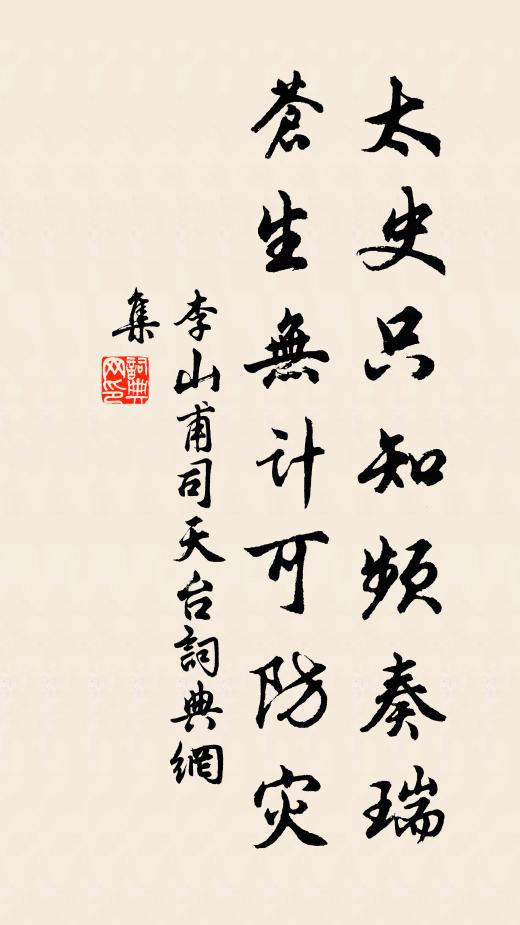 太史只知頻奏瑞
蒼生無計可防灾
李山甫司天台詞典網
集
詞典网印